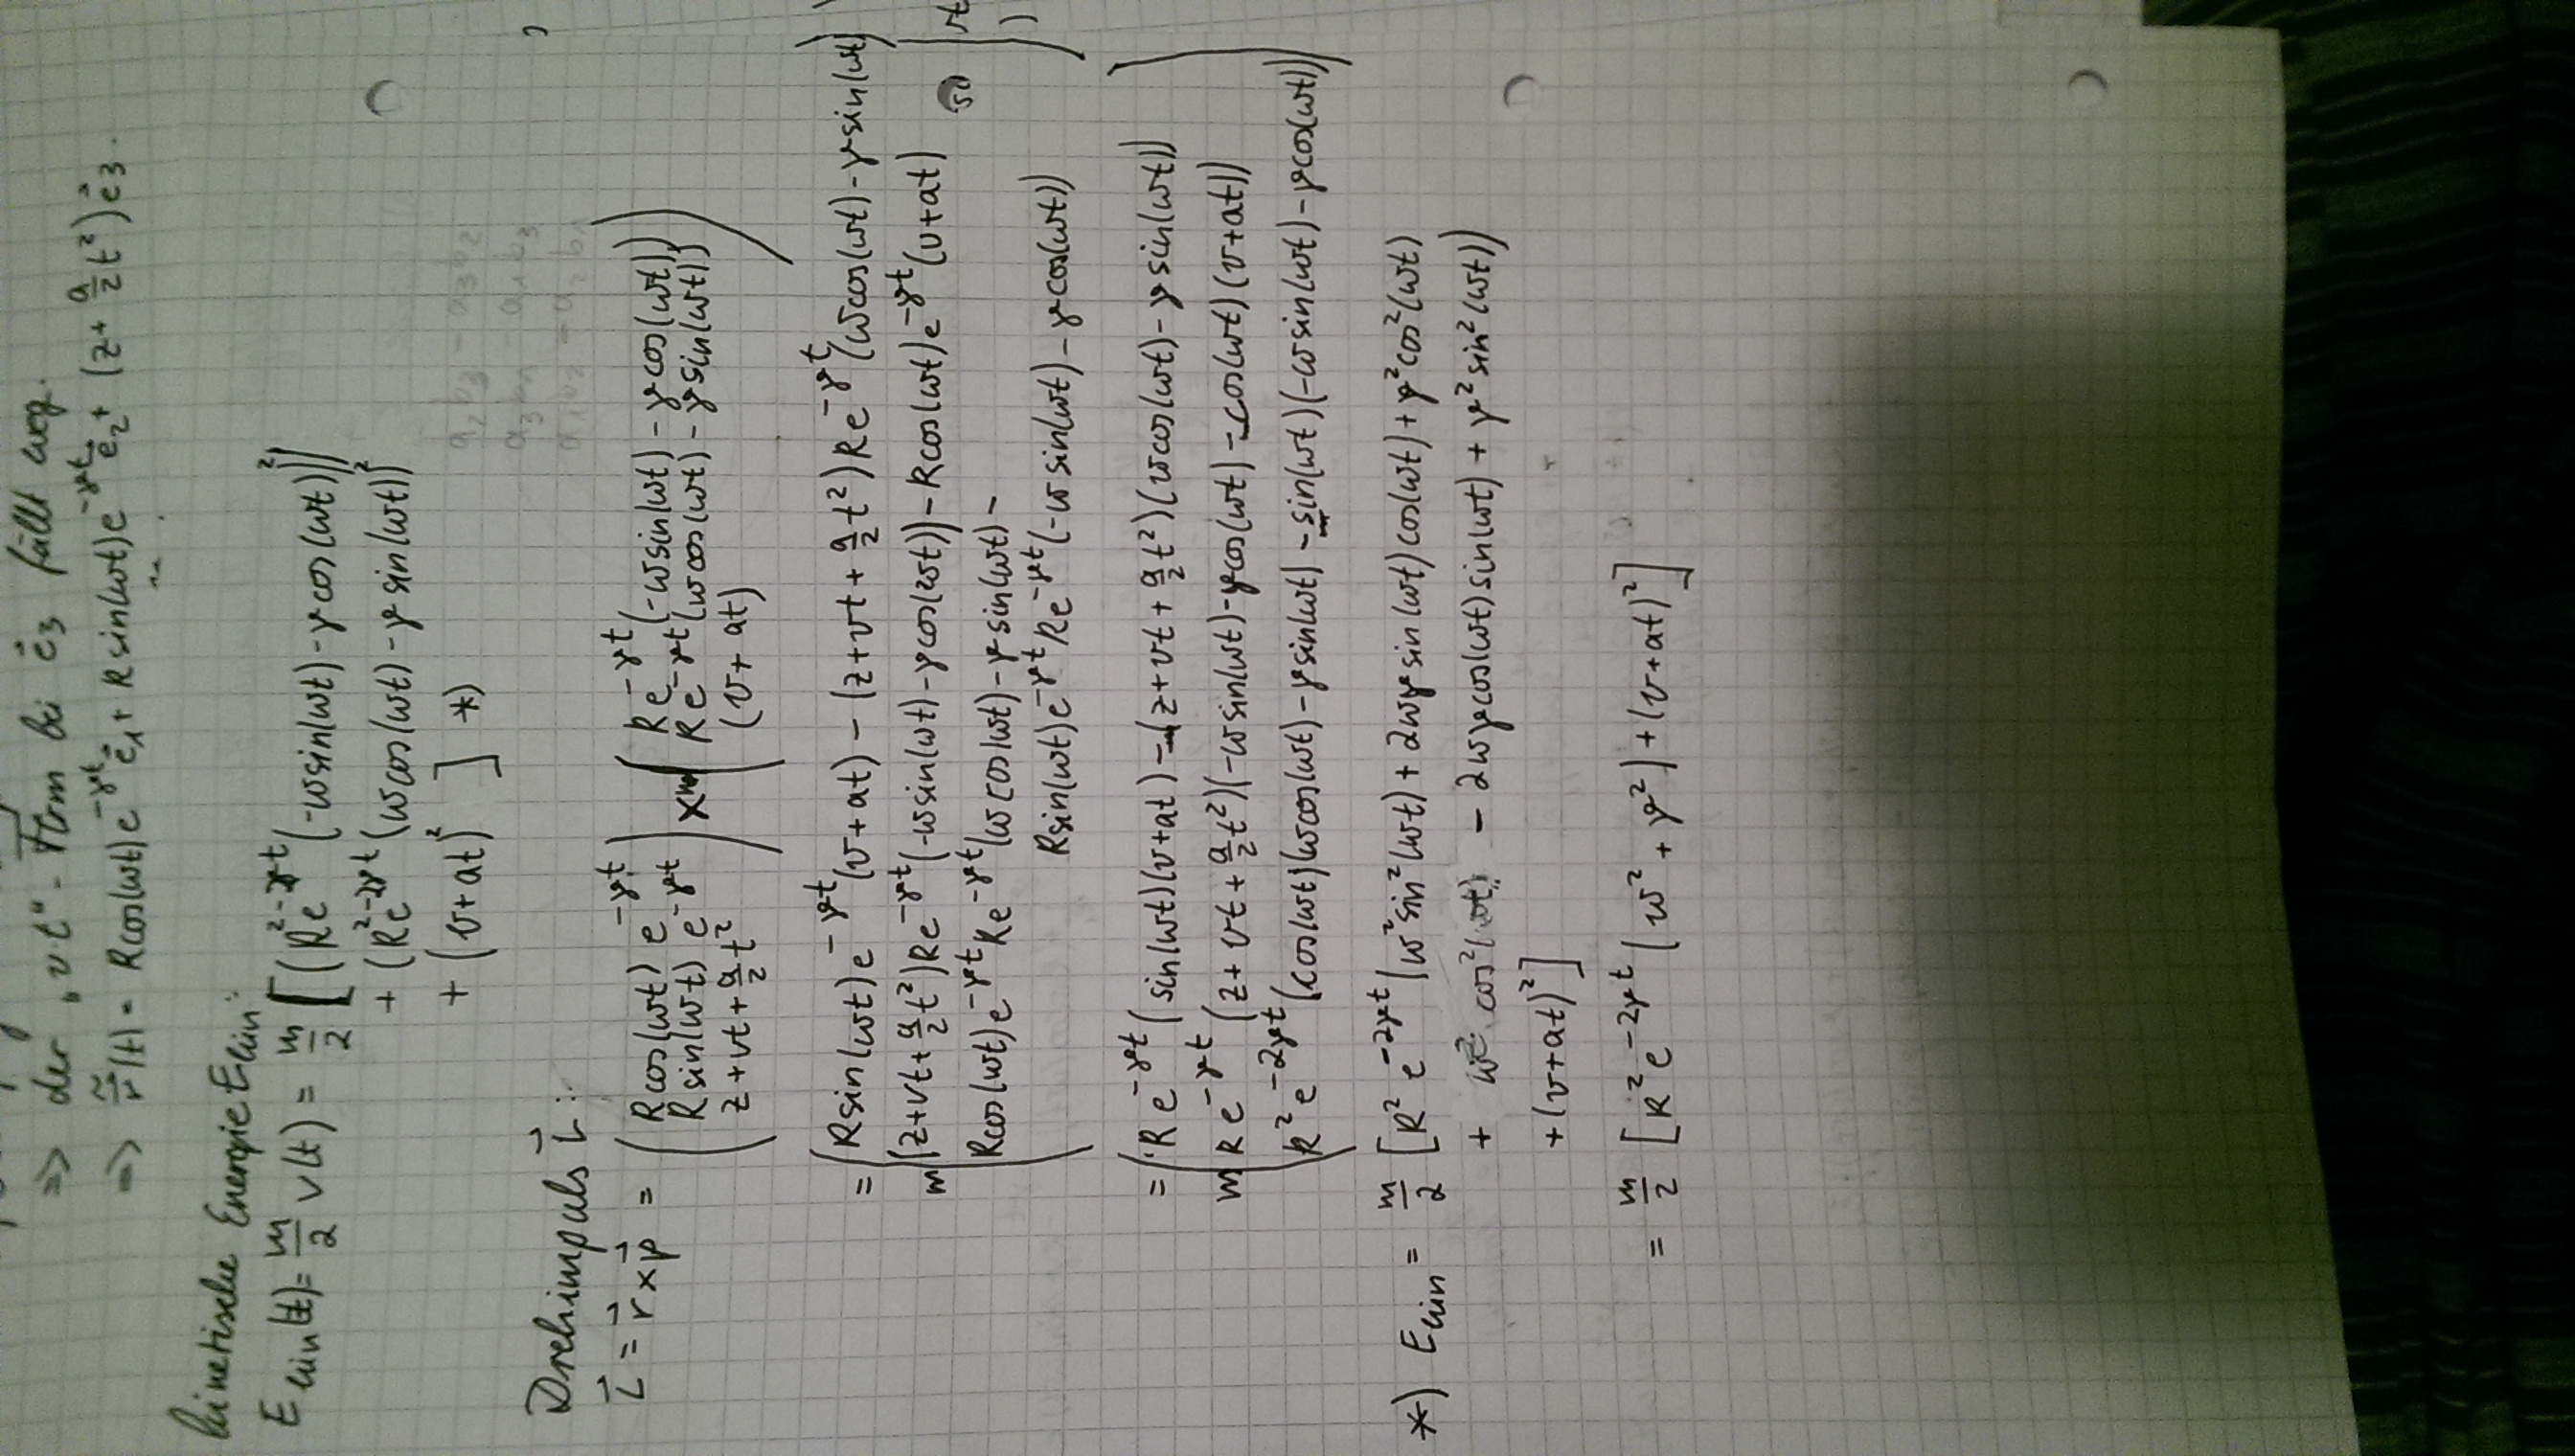 => der „vt"-Term bei e⃗₃ fällt weg.
=> r̃⃗(t) = R cos(ωt) e^{-γt} e⃗₁ + R sin(ωt) e^{-γt} e⃗₂ + (z + a/2 t²) e⃗₃.
kinetische Energie Ekin:
Ekin(t) = m/2 v(t) = m/2 [ (R² e^{-2γt} (-ω sin(ωt) - γ cos(ωt))²)
+ (R² e^{-2γt} (ω cos(ωt) - γ sin(ωt))²
+ (v + at)² ] *)
a₂b₃ - a₃b₂
a₃b₁ - a₁b₃
a₁b₂ - a₂b₁
Drehimpuls L⃗:
L⃗ = r⃗ × p⃗ = ( R cos(ωt) e^{-γt} ) × m ( R e^{-γt} (-ω sin(ωt) - γ cos(ωt)) )
( R sin(ωt) e^{-γt} ) ( R e^{-γt} (ω cos(ωt) - γ sin(ωt)) )
( z + vt + a/2 t² ) ( (v + at) )
= ( R sin(ωt) e^{-γt} (v + at) - (z + vt + a/2 t²) R e^{-γt} (ω cos(ωt) - γ sin(ωt)) )
m ( (z + vt + a/2 t²) R e^{-γt} (-ω sin(ωt) - γ cos(ωt)) - R cos(ωt) e^{-γt} (v + at) )
R cos(ωt) e^{-γt} R e^{-γt} (ω cos(ωt) - γ sin(ωt) -
R sin(ωt) e^{-γt} R e^{-γt} (-ω sin(ωt) - γ cos(ωt))
= ( R e^{-γt} ( sin(ωt) (v + at) - (z + vt + a/2 t²) (ω cos(ωt) - γ sin(ωt)) )
m R e^{-γt} (z + vt + a/2 t²) (-ω sin(ωt) - γ cos(ωt) - cos(ωt) (v + at))
R² e^{-2γt} (cos(ωt) (ω cos(ωt) - γ sin(ωt) - sin(ωt) (-ω sin(ωt) - γ cos(ωt))) )
*) Ekin = m/2 [ R² e^{-2γt} (ω² sin²(ωt) + 2ωγ sin(ωt) cos(ωt) + γ² cos²(ωt)
+ ω² cos²(ωt) - 2ωγ cos(ωt) sin(ωt) + γ² sin²(ωt))
+ (v + at)² ]
= m/2 [ R² e^{-2γt} (ω² + γ²) + (v + at)² ]